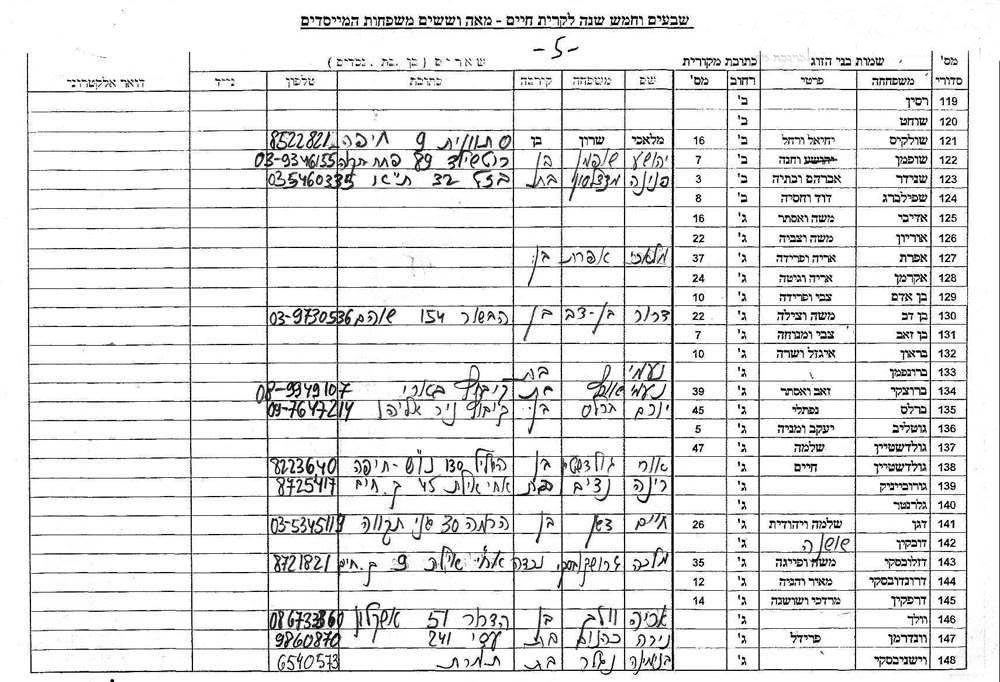 שבעים וחמש שנה לקרית חיים - מאה וששים משפחות המייסדים
-5-
מס' שמות בני הזוג כתובת מקורית שארים (בן, בת, נכדים)
סדורי משפחתה פרטי רחוב מס' שם משפחה קירבה כתובת טלפון נייד דואר אלקטרוני
119 רסין ב'
120 שוחט ב'
121 שולקיס יחיאל ורחל ב' 16 מלאכי שרון בן סתוונית 9 חיפה 8522821
122 שופמן יהושע וחנה ב' 7 יהושע שופמן בן רוטשילד 89 פתח תקוה 03-9346155
123 שנידר אברהם ובתיה ב' 3 פנינה בת בזל 32 ת"א 035460335
124 שפילברג דוד וחסיה ב' 8
125 אדיבי משה ואסתר ג' 16
126 אוריון משה וצביה ג' 22
127 אפרת אריה ופרידה ג' 37 מלאכי אפרת בן
128 אקרמן אריה וגיטה ג' 24
129 בן אדם צבי ופרידה ג' 10
130 בן דב משה וצילה ג' 22 דרור בן-דב בן הבשור 154 שוהם 03-9730536
131 בן זאב צבי ומנוחה ג' 7
132 בראון איגול ושרה ג' 10
133 ברונפמן ג' נעמי בת
134 ברוצקי זאב ואסתר ג' 39 נעמי בת קיבוץ בארי 08-9949107
135 ברלס נפתלי ג' 45 יורם ברלס בן קיבוץ ניר אליהו 09-7647214
136 גוטליב יעקב ומניה ג' 5
137 גולדשטיין שלמה ג' 47
138 גולדשטיין חיים ג' אורי גולדשטיין בן הגליל 130 נ"ש-חיפה 8223640
139 גורובייניק ג' רינה נצים בת אחי אילת 45 ק. חיים 8725417
140 גלרנטר ג'
141 דגן שלמה ויהודית ג' 26 חיים דגן בן הרמה 30 גני תקווה 03-5345119
142 דובקין שושנה ג'
143 דזלובסקי משה ופייגה ג' 35 מלכה נכדה אחי אילת 9 ק. חיים 8721821
144 דרונדובסקי מאיר והניה ג' 12
145 דרפקין מרדכי ושושנה ג' 14
146 וולך ג' אריה וולך בן הדרור 51 אשקלון 086733860
147 וונדרמן פרידל ג' נירה כהנוב בת עדי 241 9860870
148 וישניבסקי ג' בנימינה בת תמרת 6540573